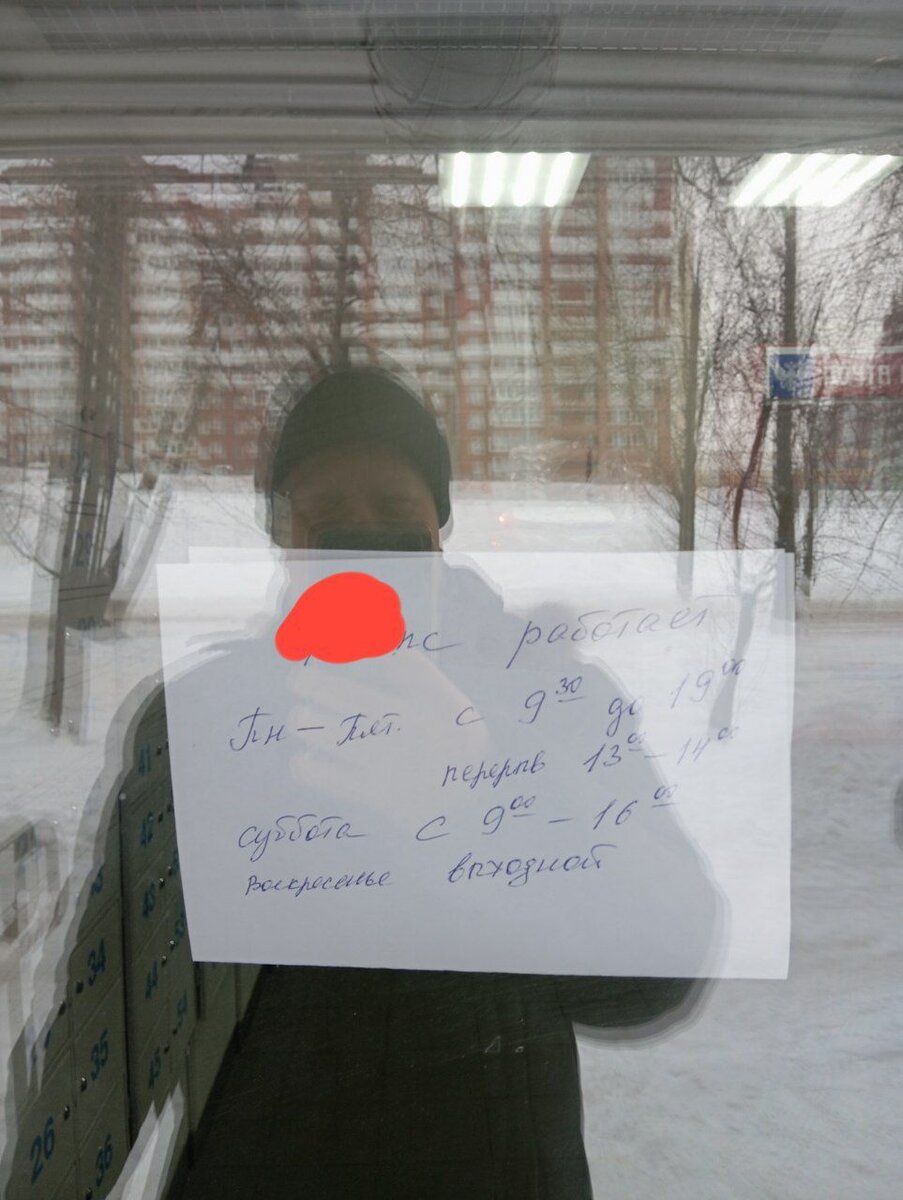 работает
Пн – Пят. с 9 30 до 19 00
перерыв 13 00 – 14 00
суббота с 9 00 – 16 00
Воскресенье выходной
ПОЧТА
41
42
43
44
45
34
35
36
26
54